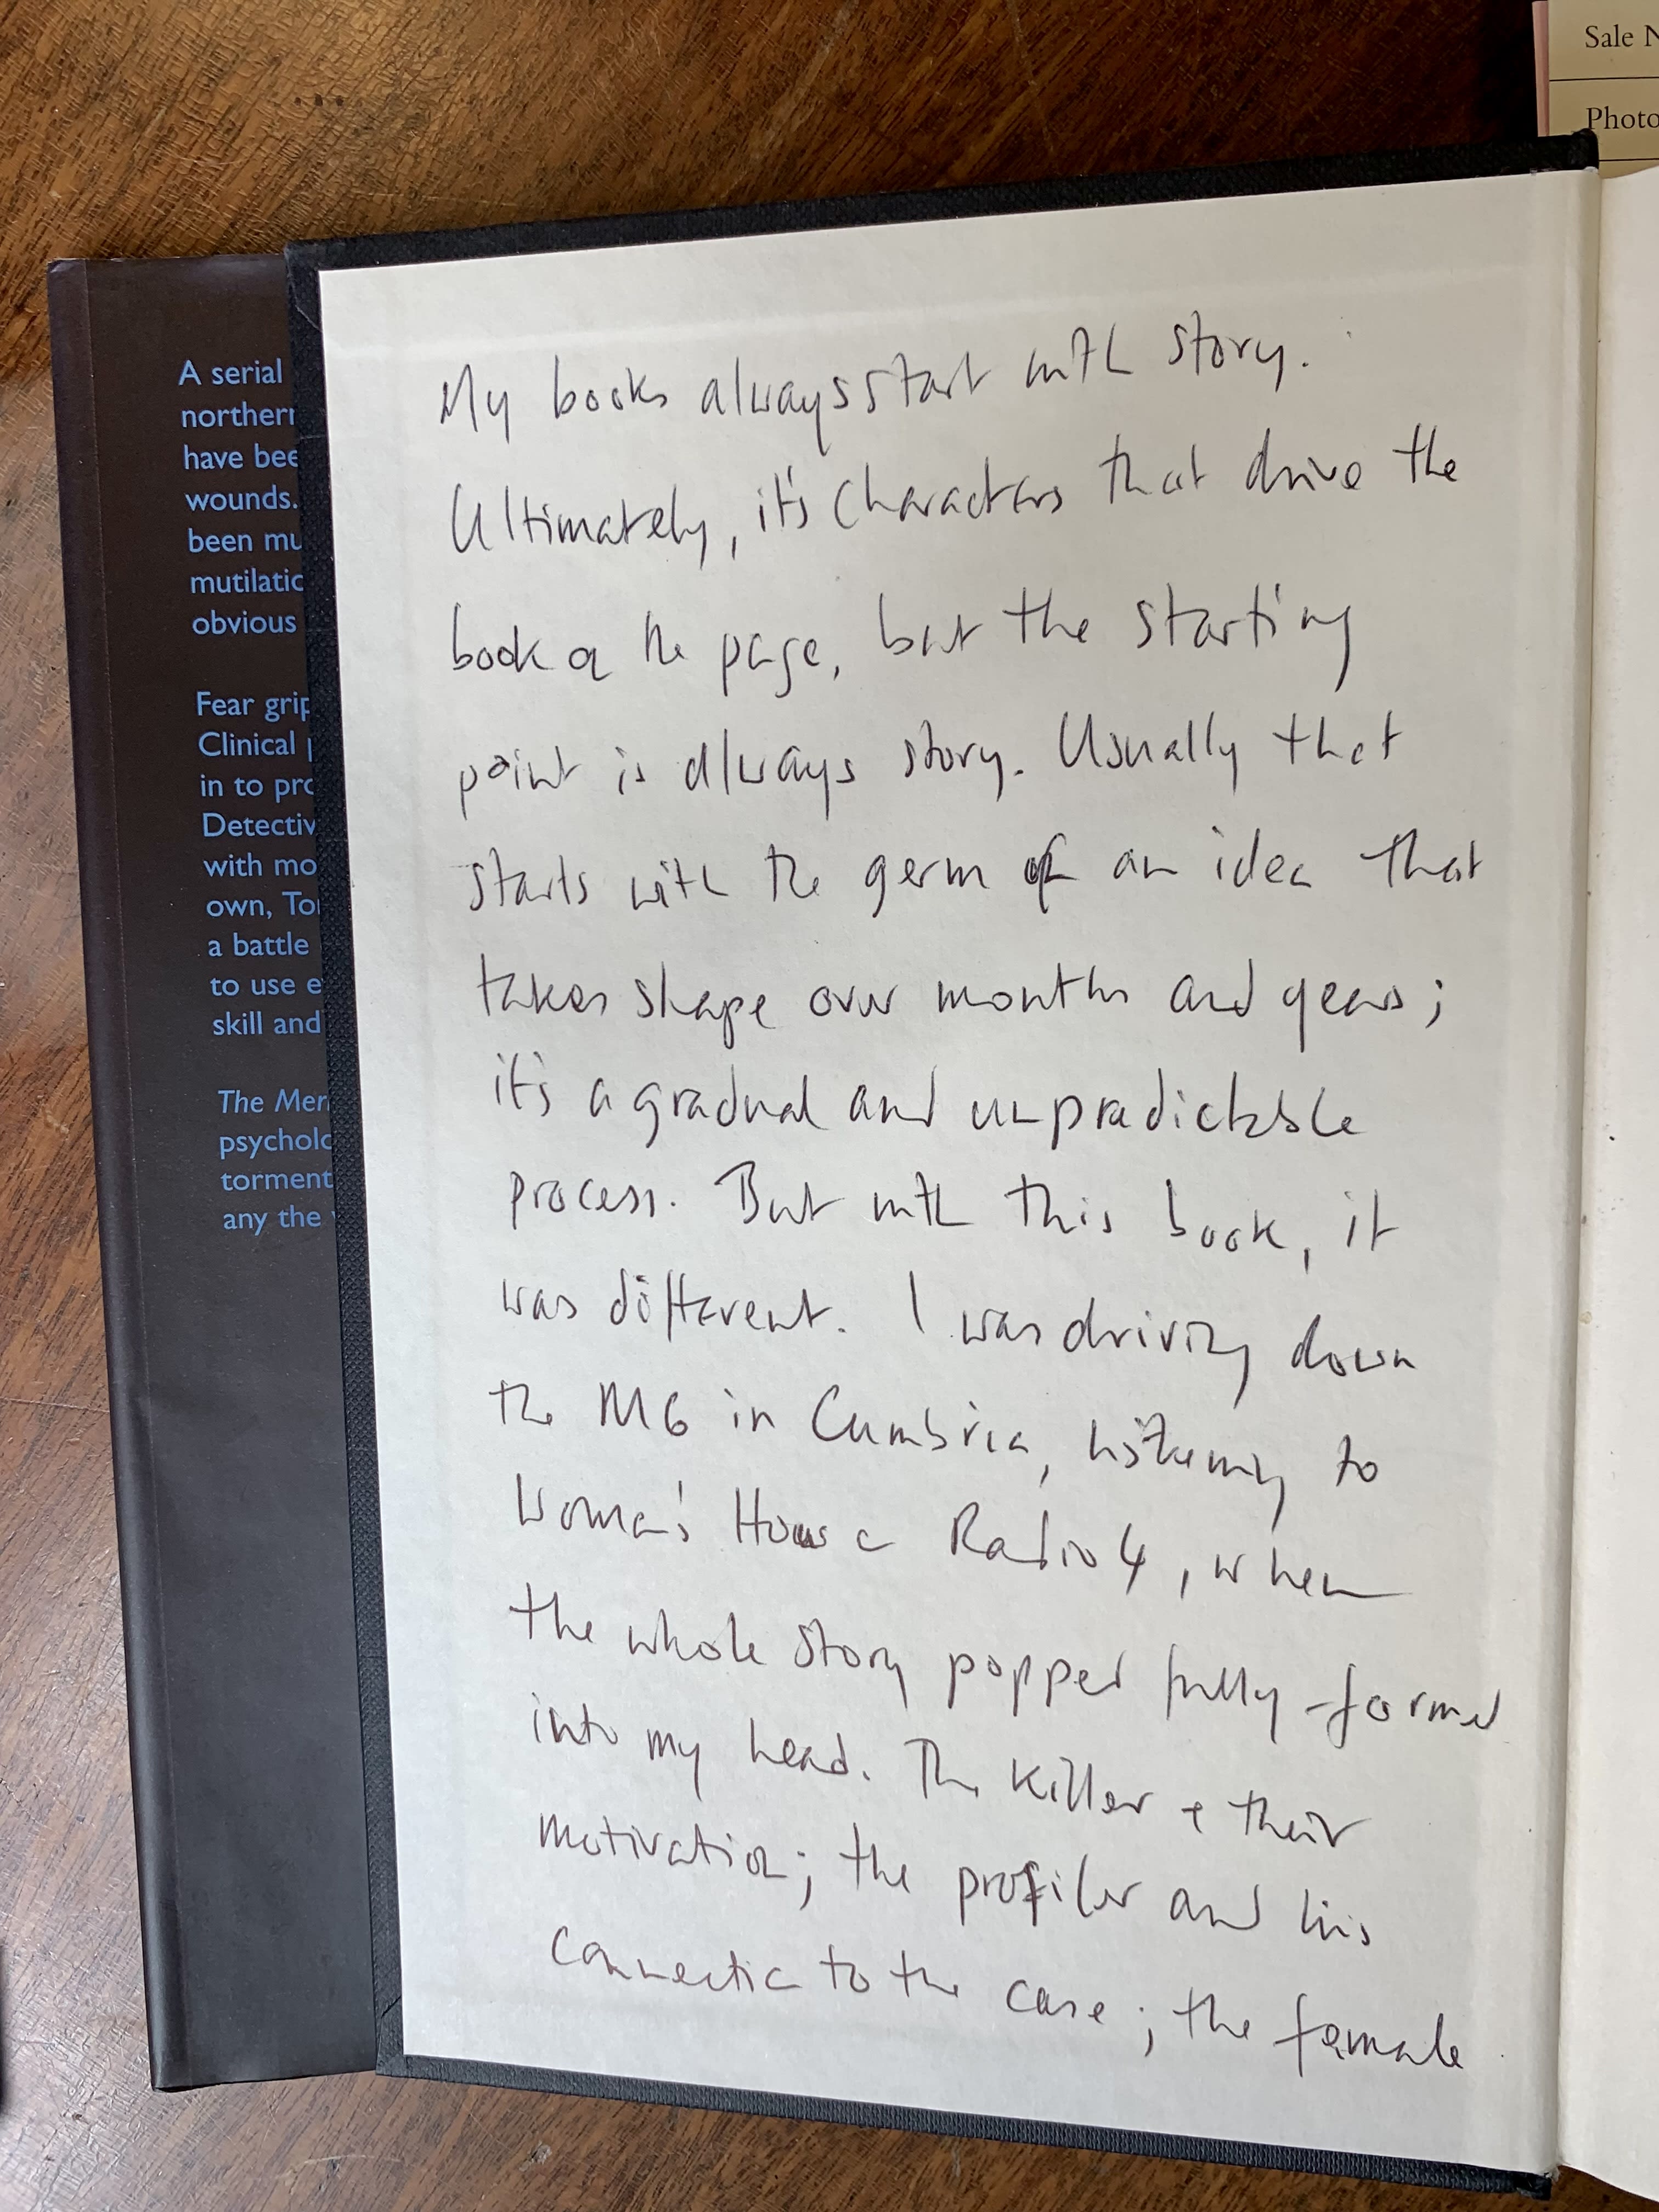 Sale N
Photo
A serial
northern
have bee
wounds.
been mu
mutilatio
obvious
Fear grip
Clinical p
in to pro
Detectiv
with mo
own, To
a battle
to use e
skill and
The Mer
psycholo
torment
any the
My books always start with story.
Ultimately, it's characters that drive the
book on the page, but the starting
point is always story. Usually that
starts with the germ of an idea that
takes shape over months and years;
it's a gradual and unpredictable
process. But with this book, it
was different. I was driving down
the M6 in Cumbria, listening to
Woman's Hour on Radio 4, when
the whole story popped fully-formed
into my head. The killer + their
motivation; the profiler and his
connection to the case; the female